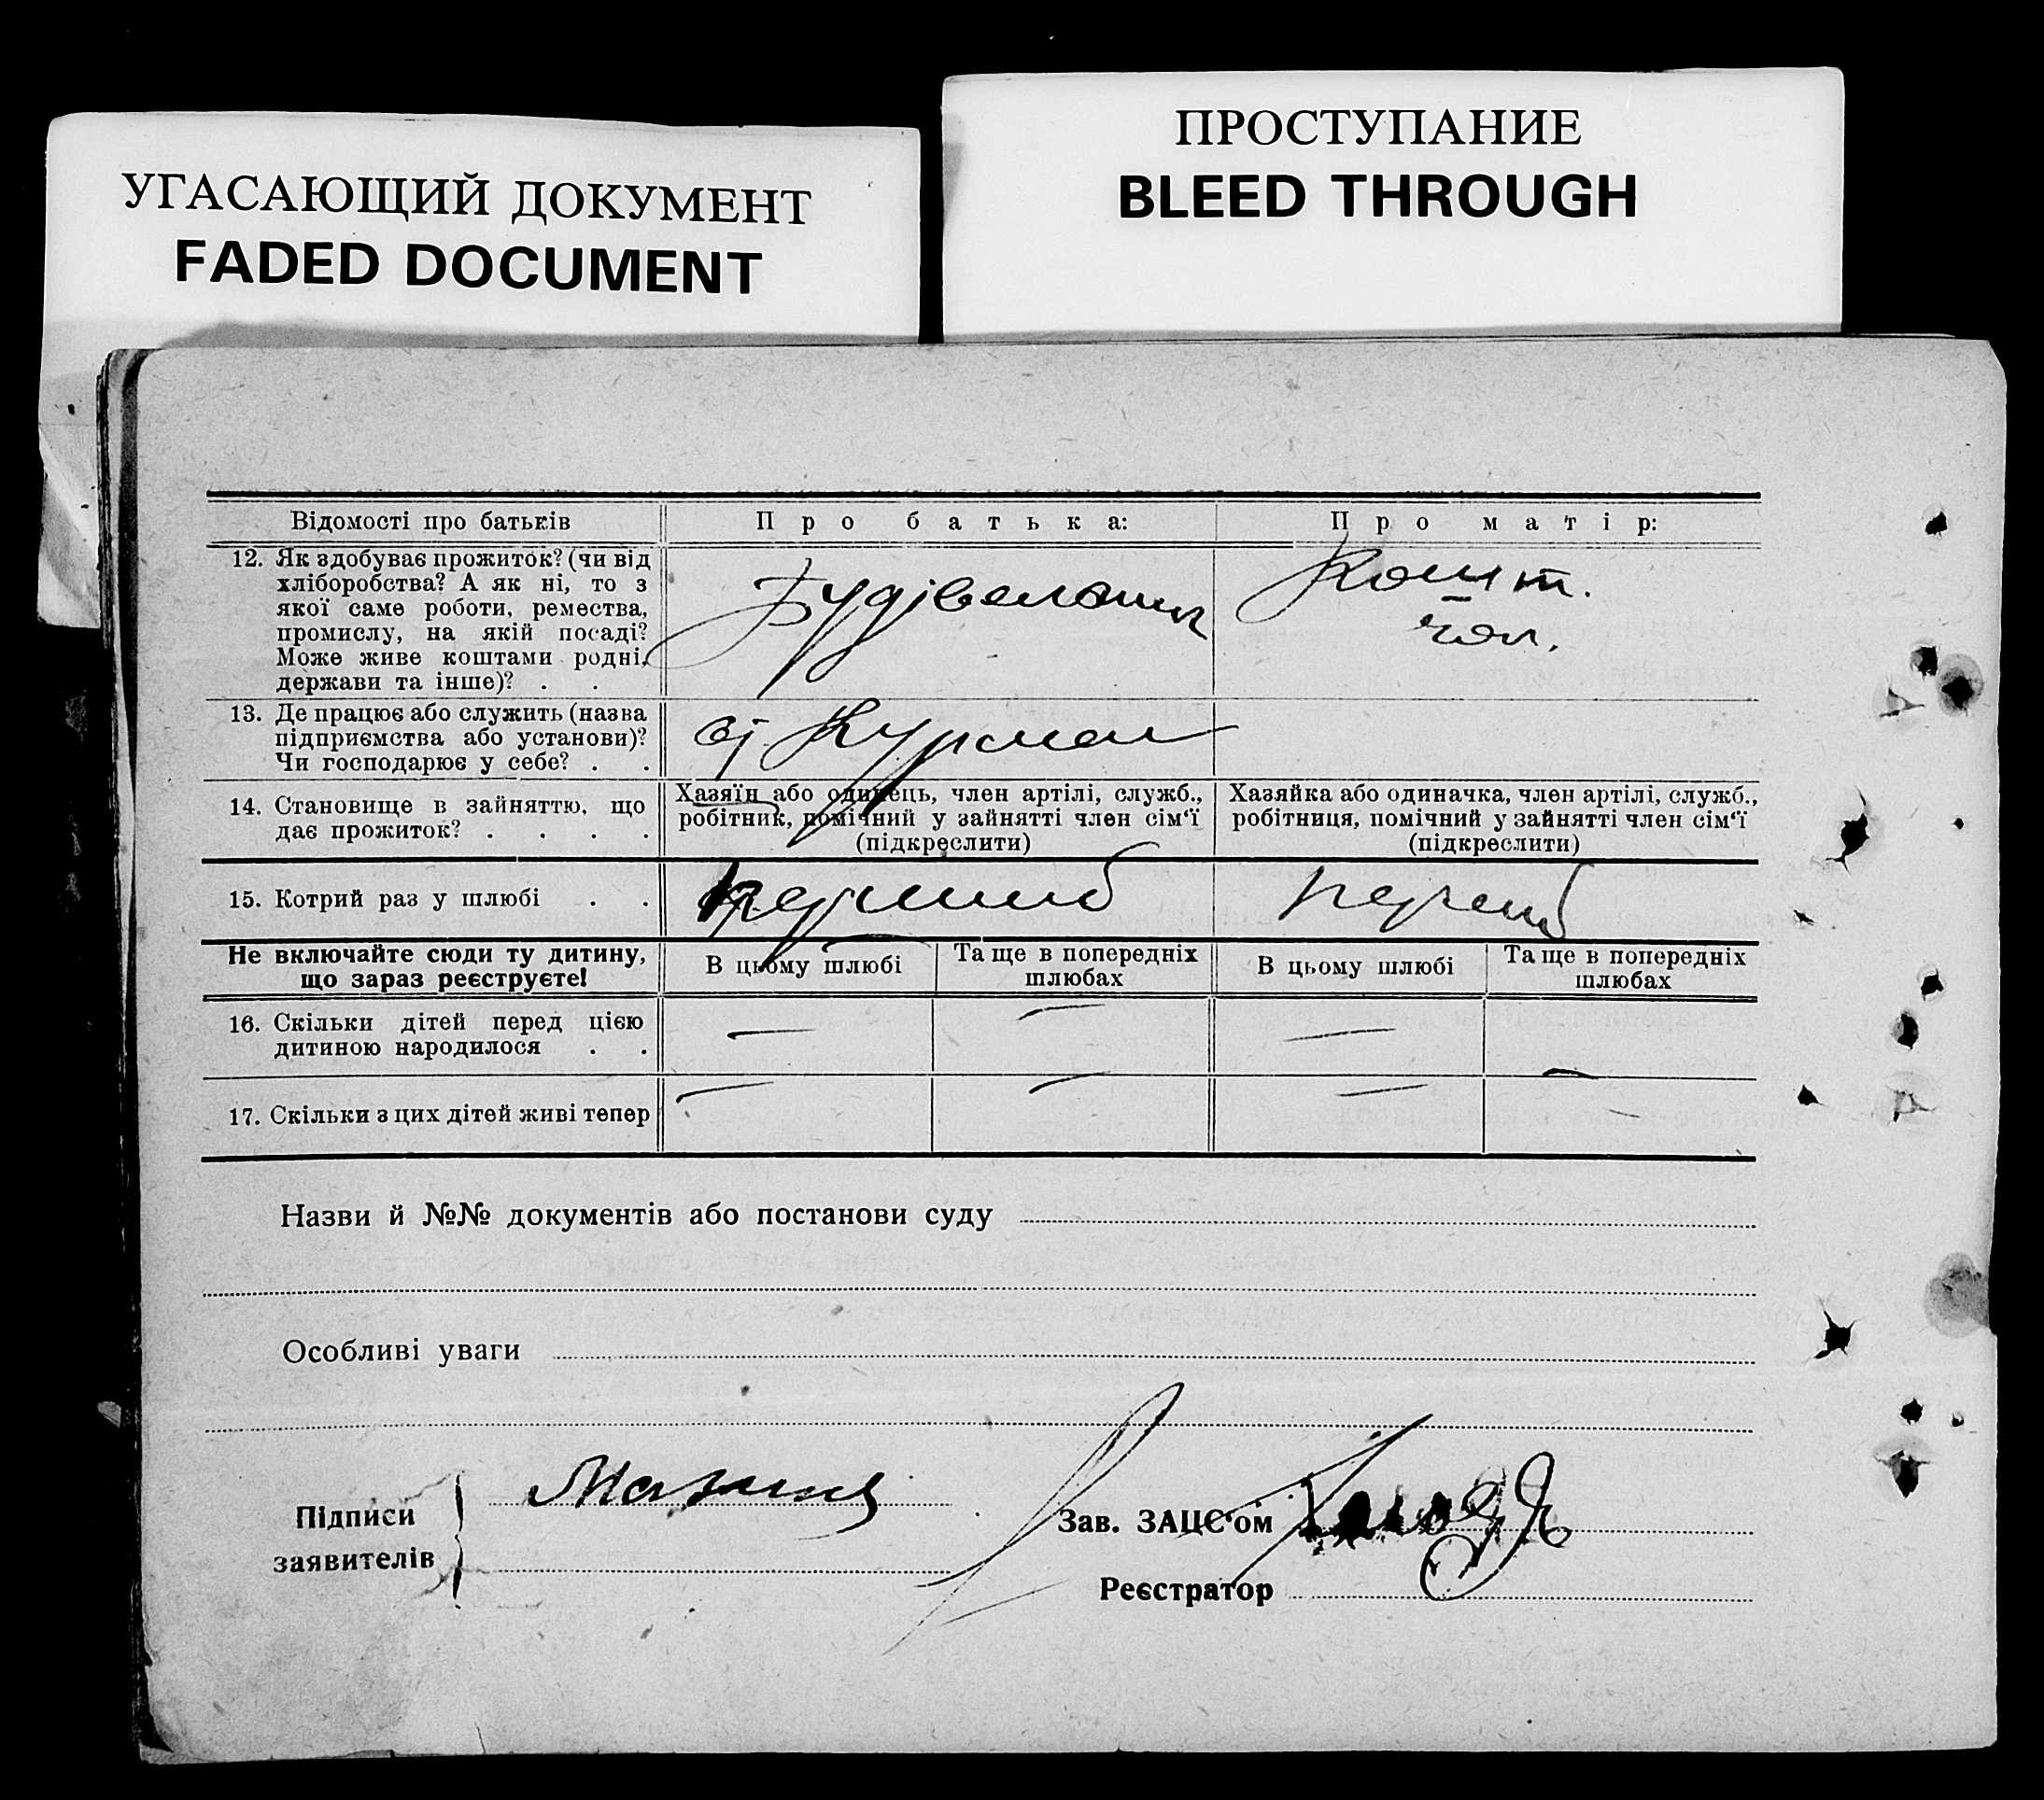 УГАСАЮЩИЙ ДОКУМЕНТ
FADED DOCUMENT
ПРОСТУПАНИЕ
BLEED THROUGH
Відомості про батьків
Про батька:
Про матір:
12. Як здобуває прожиток? (чи від
хліборобства? А як ні, то з
якої саме роботи, ремества,
промислу, на якій посаді?
Може живе коштами родні,
держави та інше)? . .
Кошт.
чол.
13. Де працює або служить (назва
підприємства або установи)?
Чи господарює у себе? . .
14. Становище в зайняттю, що
дає прожиток? . . . .
Хазяїн або одинець, член артілі, служб.,
робітник, помічний у зайнятті член сім‘ї
(підкреслити)
Хазяйка або одиначка, член артілі, служб.,
робітниця, помічний у зайнятті член сім‘ї
(підкреслити)
15. Котрий раз у шлюбі . .
Не включайте сюди ту дитину,
що зараз реєструєте!
В цьому шлюбі
Та ще в попередніх
шлюбах
В цьому шлюбі
Та ще в попередніх
шлюбах
16. Скільки дітей перед цією
дитиною народилося . .
— — — —
17. Скільки з цих дітей живі тепер
— — — —
Назви й №№ документів або постанови суду
Особливі уваги
Підписи
заявителів
Зав. ЗАЦС‘ом
Реєстратор